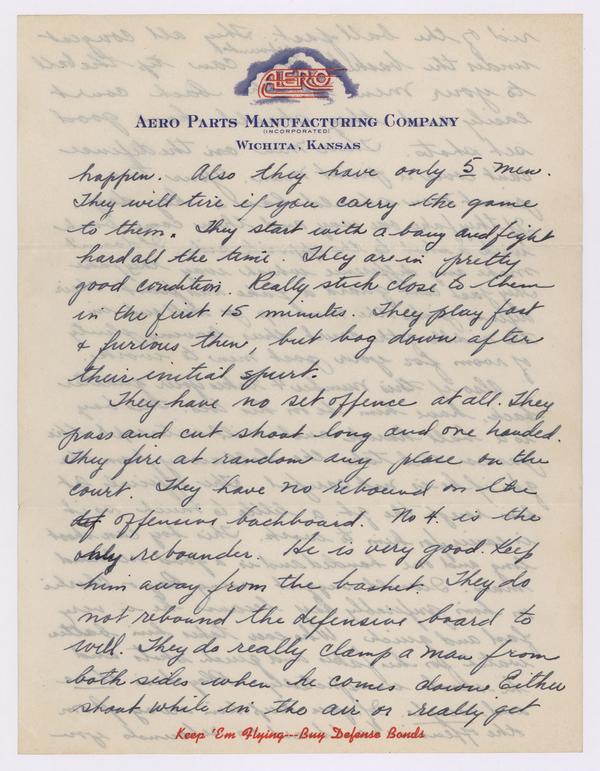 AERO
AERO PARTS MANUFACTURING COMPANY
(INCORPORATED)
WICHITA, KANSAS
happen. Also they have only 5 men.
They will tire if you carry the game
to them. They start with a bang and fight
hard all the time. They are in pretty
good condition. Really stick close to them
in the first 15 minutes. They play fast
& furious then, but bog down after
their initial spurt.
They have no set offence at all. They
pass and cut shoot long and one handed.
They fire at random any place on the
court. They have no rebound on the
def offensive backboard. No 4. is the
only rebounder. He is very good. Keep
him away from the basket. They do
not rebound the defensive board to
well. They do really clamp a man from
both sides when he comes down. Either
shoot while in the air or really get
Keep 'Em Flying---Buy Defense Bonds